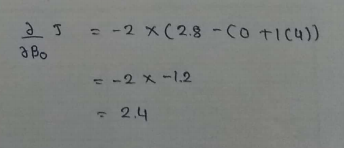 ∂/∂β₀ J = -2 × (2.8 - (0 + 1(4))
= -2 × -1.2
= 2.4